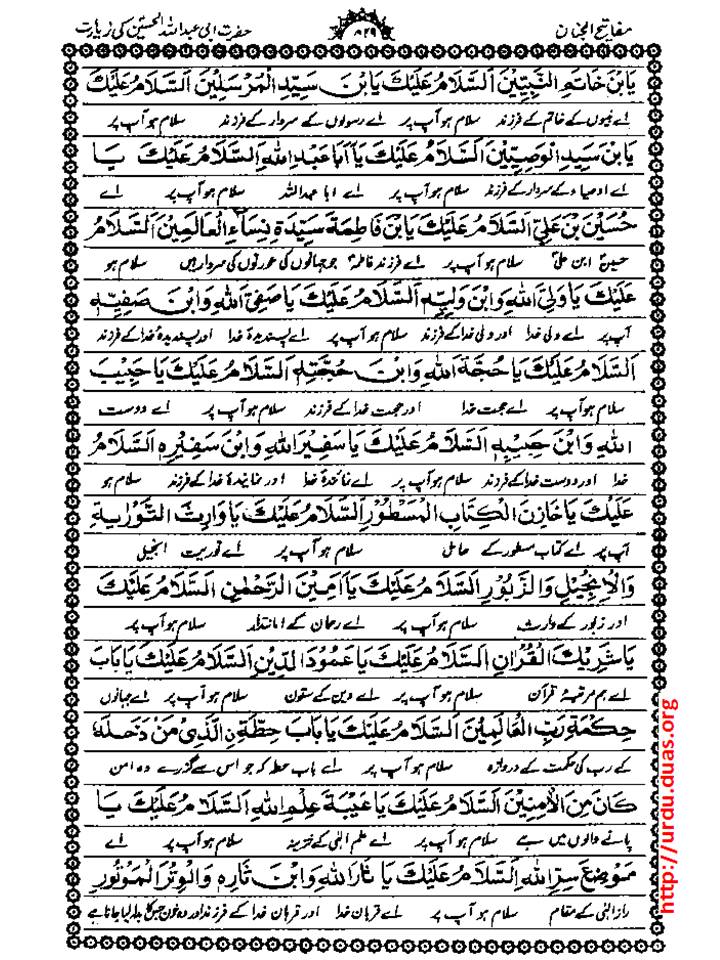 مفاتیح الجنان
۸۲۹
حضرت ابی عبداللہ الحسینؑ کی زیارت
يَابْنَ خَاتَمِ النَّبِيِّيْنَ اَلسَّلَامُ عَلَيْكَ يَابْنَ سَيِّدِ الْمُرْسَلِيْنَ اَلسَّلَامُ عَلَيْكَ
اے نبیوں کے خاتم کے فرزند سلام ہو آپ پر اے رسولوں کے سردار کے فرزند سلام ہو آپ پر
يَابْنَ سَيِّدِ الْوَصِيِّيْنَ اَلسَّلَامُ عَلَيْكَ يَا اَبَا عَبْدِ اللهِ اَلسَّلَامُ عَلَيْكَ يَا
اے اوصیاء کے سردار کے فرزند سلام ہو آپ پر اے ابا عبداللہ سلام ہو آپ پر اے
حُسَيْنَ بْنَ عَلِيٍّ اَلسَّلَامُ عَلَيْكَ يَابْنَ فَاطِمَةَ سَيِّدَةِ نِسَاءِ الْعَالَمِيْنَ اَلسَّلَامُ
حسینؑ ابن علیؑ سلام ہو آپ پر اے فرزند فاطمہؑ جو جہانوں کی عورتوں کی سردار ہیں سلام ہو
عَلَيْكَ يَا وَلِيَّ اللهِ وَابْنَ وَلِيِّهِ اَلسَّلَامُ عَلَيْكَ يَا صَفِيَّ اللهِ وَابْنَ صَفِيِّهِ
آپ پر اے ولی خدا اور ولی خدا کے فرزند سلام ہو آپ پر اے پسندیدۂ خدا اور پسندیدۂ خدا کے فرزند
اَلسَّلَامُ عَلَيْكَ يَا حُجَّةَ اللهِ وَابْنَ حُجَّتِهِ اَلسَّلَامُ عَلَيْكَ يَا حَبِيْبَ
سلام ہو آپ پر اے حجت خدا اور حجت خدا کے فرزند سلام ہو آپ پر اے دوست
اللهِ وَابْنَ حَبِيْبِهِ اَلسَّلَامُ عَلَيْكَ يَا سَفِيْرَ اللهِ وَابْنَ سَفِيْرِهِ اَلسَّلَامُ
خدا اور دوست خدا کے فرزند سلام ہو آپ پر اے نمائندۂ خدا اور نمایندۂ خدا کے فرزند سلام ہو
عَلَيْكَ يَا خَازِنَ الْكِتَابِ الْمَسْطُوْرِ اَلسَّلَامُ عَلَيْكَ يَا وَارِثَ التَّوْرَاةِ
آپ پر اے کتاب مسطور کے حامل سلام ہو آپ پر اے توریت انجیل
وَالْاِنْجِيْلِ وَالزَّبُوْرِ اَلسَّلَامُ عَلَيْكَ يَا اَمِيْنَ الرَّحْمٰنِ اَلسَّلَامُ عَلَيْكَ
اور زبور کے وارث سلام ہو آپ پر اے رحمان کے امانتدار سلام ہو آپ پر
يَا شَرِيْكَ الْقُرْاٰنِ اَلسَّلَامُ عَلَيْكَ يَا عَمُوْدَ الدِّيْنِ اَلسَّلَامُ عَلَيْكَ يَا بَابَ
اے ہم مرتبۂ قرآن سلام ہو آپ پر اے دین کے ستون سلام ہو آپ پر اے جہانوں
حِكْمَةِ رَبِّ الْعَالَمِيْنَ اَلسَّلَامُ عَلَيْكَ يَا بَابَ حِطَّةٍ نِ الَّذِيْ مَنْ دَخَلَهُ
کے رب کی حکمت کے دروازہ سلام ہو آپ پر اے باب حطہ کہ جو اس سے گزرے وہ امن
كَانَ مِنَ الْاٰمِنِيْنَ اَلسَّلَامُ عَلَيْكَ يَا عَيْبَةَ عِلْمِ اللهِ اَلسَّلَامُ عَلَيْكَ يَا
پانے والوں میں ہے سلام ہو آپ پر اے علم الہٰی کے خزینہ سلام ہو آپ پر اے
مَوْضِعَ سِرِّ اللهِ اَلسَّلَامُ عَلَيْكَ يَا ثَارَ اللهِ وَابْنَ ثَارِهِ وَالْوِتْرَ الْمَوْتُوْرَ
راز الہٰی کے مقام سلام ہو آپ پر اے قربان خدا اور قربان خدا کے فرزند اور وہ خون جس کا بدلہ لیا جانا ہے
http://urdu.duas.org